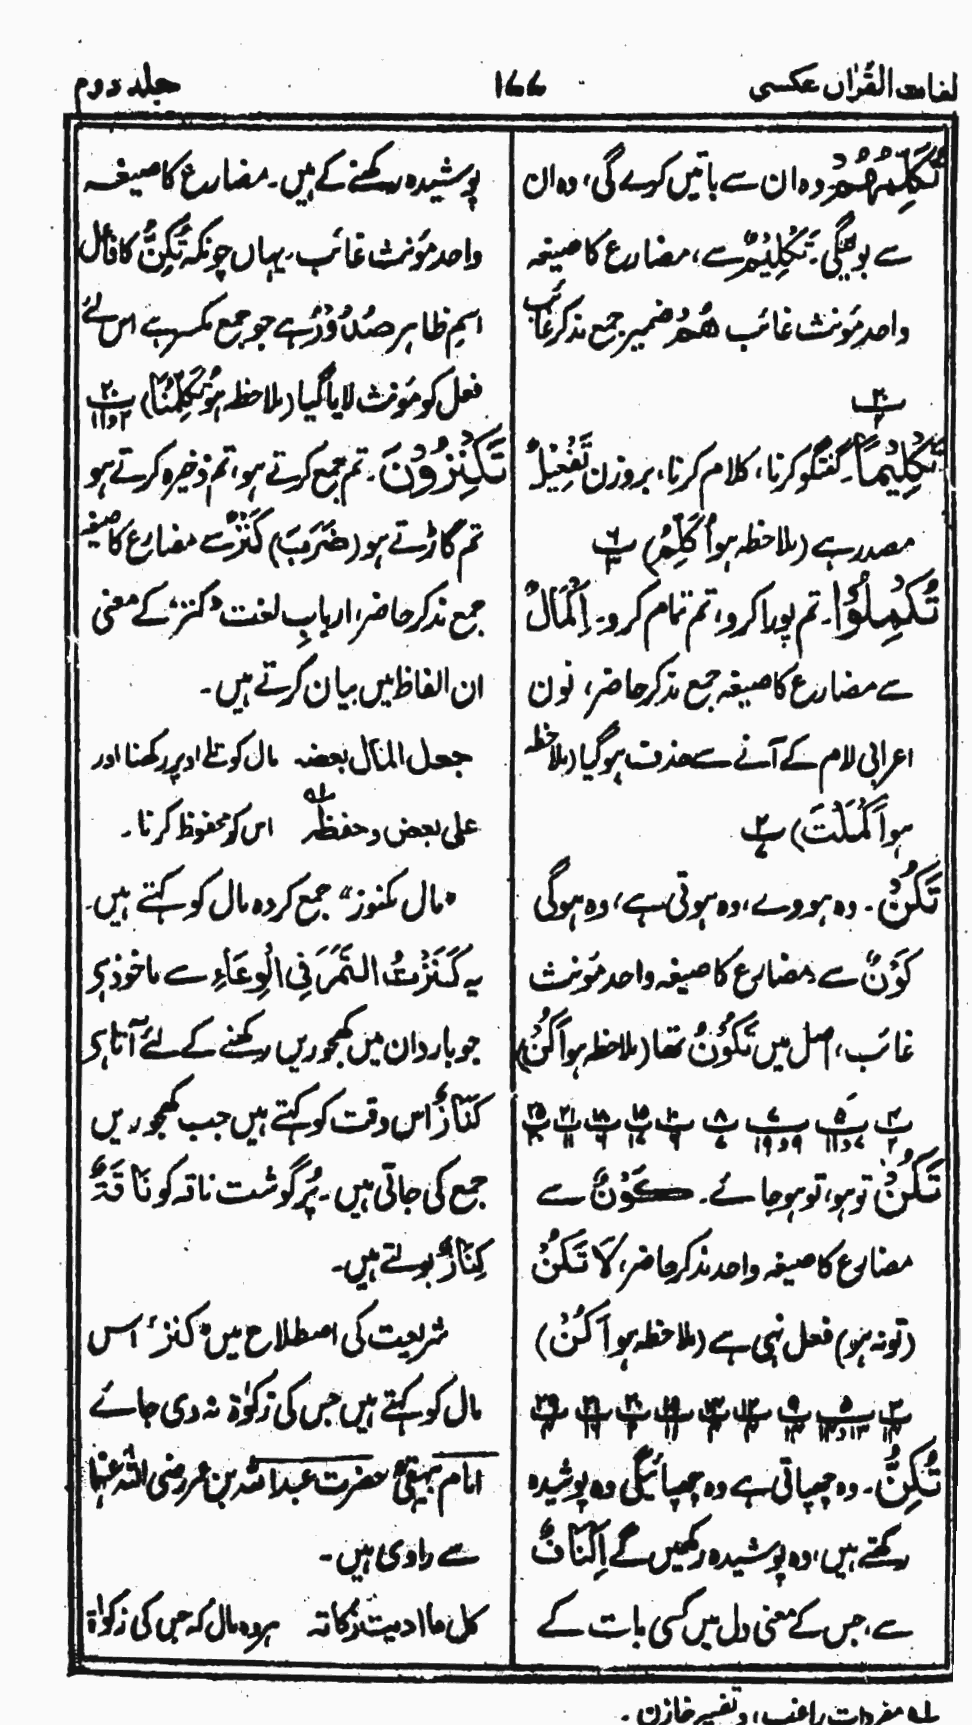 لغات القرآن عکسی
۱۷۷
جلد دوم
تُکَلِّمُهُمْ۔ وہ ان سے باتیں کرے گی، وہ ان
سے بولیگی۔ تَکْلِیْمٌ سے، مضارع کا صیغہ
واحد مؤنث غائب ھُمْ ضمیر جمع مذکر غائب
۲۰
۲
تَکْلِیْمًا۔ گفتگو کرنا، کلام کرنا، بروزن تَفْعِیْلٌ
مصدر ہے (ملاحظہ ہو اُکَلِّمُ) ۶
۳
تُکْمِلُوْا۔ تم پورا کرو، تم تمام کرو۔ اِکْمَالٌ
سے مضارع کا صیغہ جمع مذکر حاضر، نون
اعرابی لام کے آنے سے حذف ہوگیا (ملاحظہ
ہو اَکْمَلْتُ) ۲
۷
تَکُنْ۔ وہ ہووے، وہ ہوتی ہے، وہ ہوگی
کَوْنٌ سے مضارع کا صیغہ واحد مؤنث
غائب، اصل میں تَکُوْنُ تھا (ملاحظہ ہو اَکُنْ)
تَکُنْ تو ہو، تو ہوجائے۔ کَوْنٌ سے
مضارع کا صیغہ واحد مذکر حاضر، لَا تَکُنْ
(تو نہ ہو) فعل نہی ہے (ملاحظہ ہو اَکُنْ)
تُکِنُّ۔ وہ چھپاتی ہے وہ چھپائیگی وہ پوشیدہ
رکھتے ہیں، وہ پوشیدہ رکھیں گے اِکْنَانٌ
سے، جس کے معنی دل میں کسی بات کے
پوشیدہ رکھنے کے ہیں۔ مضارع کا صیغہ
واحد مؤنث غائب۔ یہاں چونکہ تُکِنُّ کا فاعل
اسم ظاہر صُدُوْرُ ہے جو جمع مکسر ہے اس لئے
فعل کو مؤنث لایا گیا (ملاحظہ ہو تُکَلِّمُنَا) ۲۰
۲ و ۱۱
تَکْنِزُوْنَ۔ تم جمع کرتے ہو، تم ذخیرہ کرتے ہو
تم گاڑتے ہو (ضَرَبَ) کَنْزٌ سے مضارع کا صیغہ
جمع مذکر حاضر، اربابِ لغت "کنز" کے معنی
ان الفاظ میں بیان کرتے ہیں۔
جعل المال بعضہ مال کو تلے اوپر رکھنا اور
علی بعض وحفظہ ؂۱ اس کو محفوظ کرنا۔
"مال کنوز" جمع کردہ مال کو کہتے ہیں۔
یہ کَنَزْتُ التَّمَرَ فِی الْوِعَاءِ سے ماخوذ ہی
جو باردان میں کھجوریں رکھنے کے لئے آتا ہی
کَنَازٌ اس وقت کو کہتے ہیں جب کھجوریں
جمع کی جاتی ہیں۔ پُرگوشت ناقہ کو نَاقَۃٌ
کِنَازٌ بولتے ہیں۔
شریعت کی اصطلاح میں "کنز" اس
مال کو کہتے ہیں جس کی زکوٰۃ نہ دی جائے
امام بیہقیؒ حضرت عبداللہ بن عمر رضی اللہ عنہما
سے راوی ہیں۔
کل ما ادیت زکاتہ ہر وہ مال کہ جس کی زکوٰۃ
؂۱ مفردات راغب، وتفسیر خازن۔